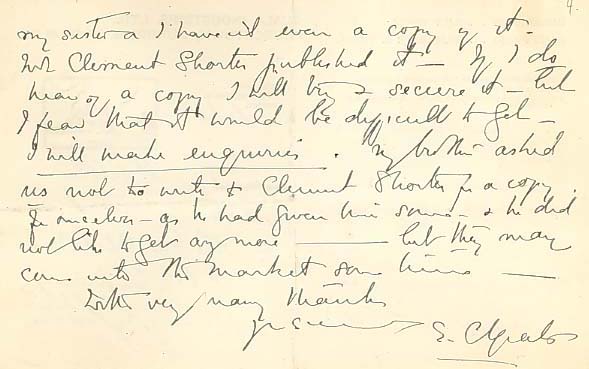 4.
my sister & I haven't even a copy of it.
Mr Clement Shorter published it — If I do
hear of a copy I will try & secure it — but
I fear that it would be difficult to get —
I will make enquiries. My brother asked
us not to write to Clement Shorter for a copy
for ourselves — as he had given him some — & he did
not like to get any more —— but they may
come into the market some time ——
With very many thanks
yrs sincerely
E. C. Yeats